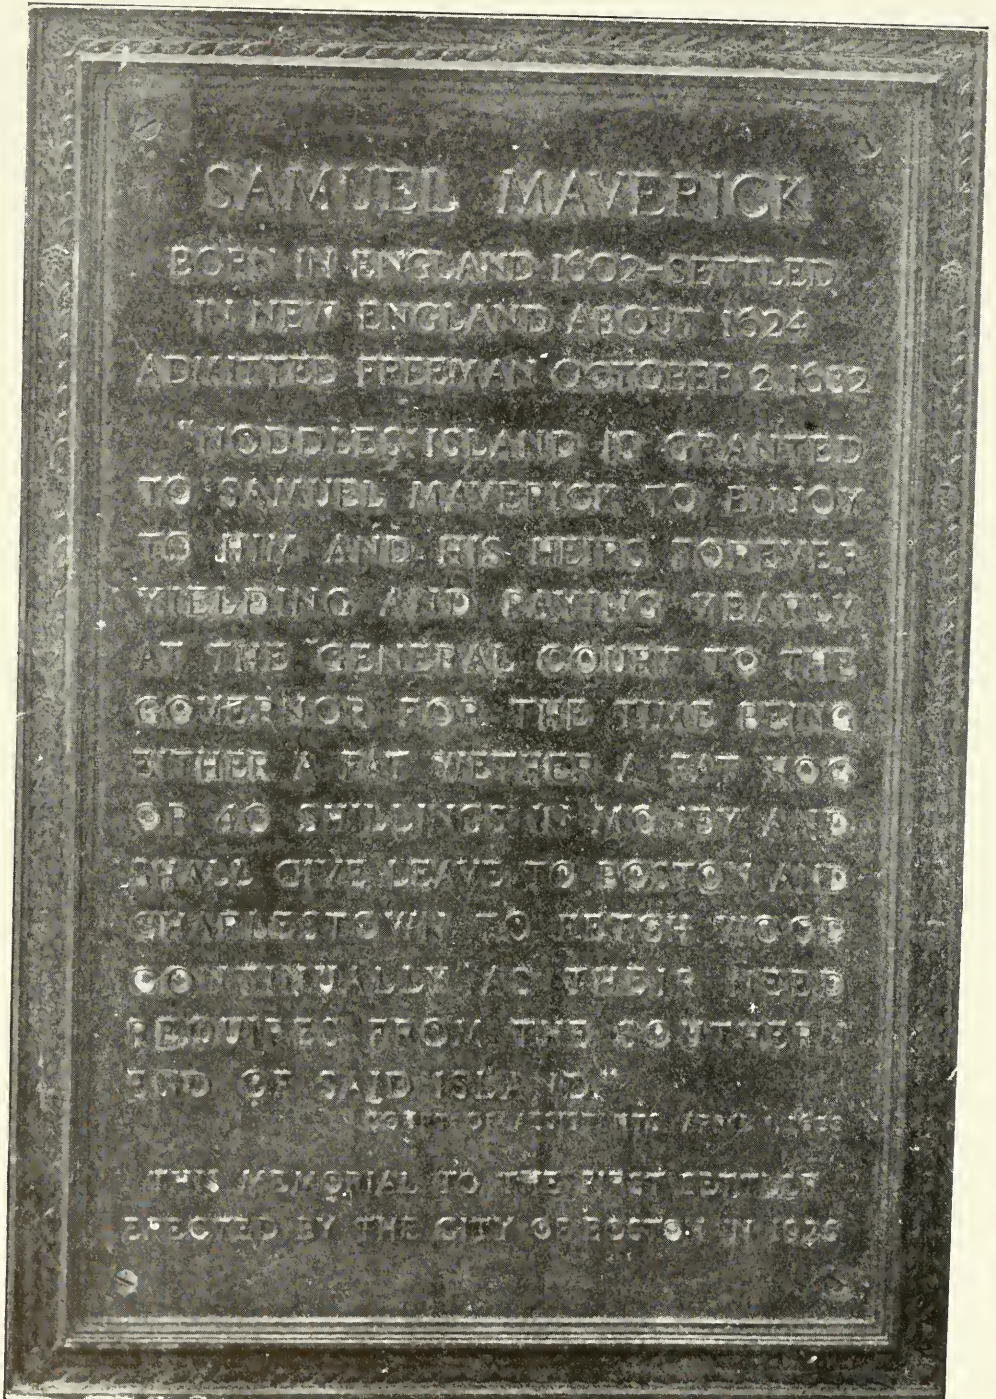 SAMUEL MAVERICK
BORN IN ENGLAND 1602-SETTLED
IN NEW ENGLAND ABOUT 1624
ADMITTED FREEMAN OCTOBER 2 1632
"NODDLES ISLAND IS GRANTED
TO SAMUEL MAVERICK TO ENJOY
TO HIM AND HIS HEIRS FOREVER
YIELDING AND PAYING YEARLY
AT THE GENERAL COURT TO THE
GOVERNOR FOR THE TIME BEING
EITHER A FAT WETHER A FAT HOG
OR 40 SHILLINGS IN MONEY AND
SHALL GIVE LEAVE TO BOSTON AND
CHARLESTOWN TO FETCH WOOD
CONTINUALLY AS THEIR NEED
REQUIRES FROM THE SOUTHERN
END OF SAID ISLAND."
COURT OF
THIS MEMORIAL TO THE FIRST SETTLER
ERECTED BY THE CITY OF BOSTON IN